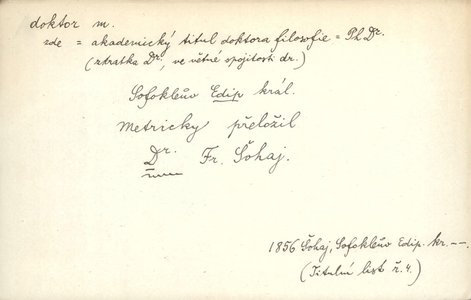 doktor m.
zde = akademický titul doktora filosofie = PhDr.
(zkratka Dr., ve větné spojitosti dr.)
Sofokleův Edip král.
Metricky přeložil
Dr. Fr. Šohaj.
1856 Šohaj, Sofokleův Edip. kr. --.
(Titulní list ř. 4.)